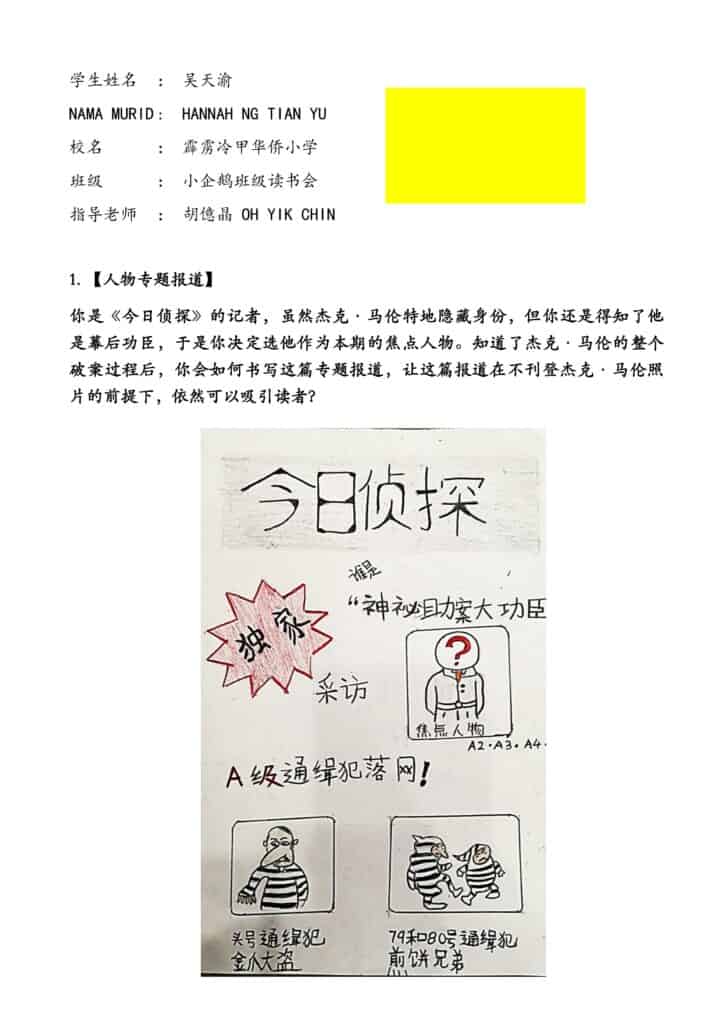 学生姓名 : 吴天渝
NAMA MURID: HANNAH NG TIAN YU
校名 : 霹雳冷甲华侨小学
班级 : 小企鹅班级读书会
指导老师 : 胡億晶 OH YIK CHIN
1.【人物专题报道】
你是《今日侦探》的记者，虽然杰克·马伦特地隐藏身份，但你还是得知了他
是幕后功臣，于是你决定选他作为本期的焦点人物。知道了杰克·马伦的整个
破案过程后，你会如何书写这篇专题报道，让这篇报道在不刊登杰克·马伦照
片的前提下，依然可以吸引读者？
今日侦探
谁是
“神祕助案大功臣
独家
采访
?
焦点人物
A2·A3·A4·
A级通缉犯落网!
头号通缉犯
金爪大盗
79和80号通缉犯
煎饼兄弟